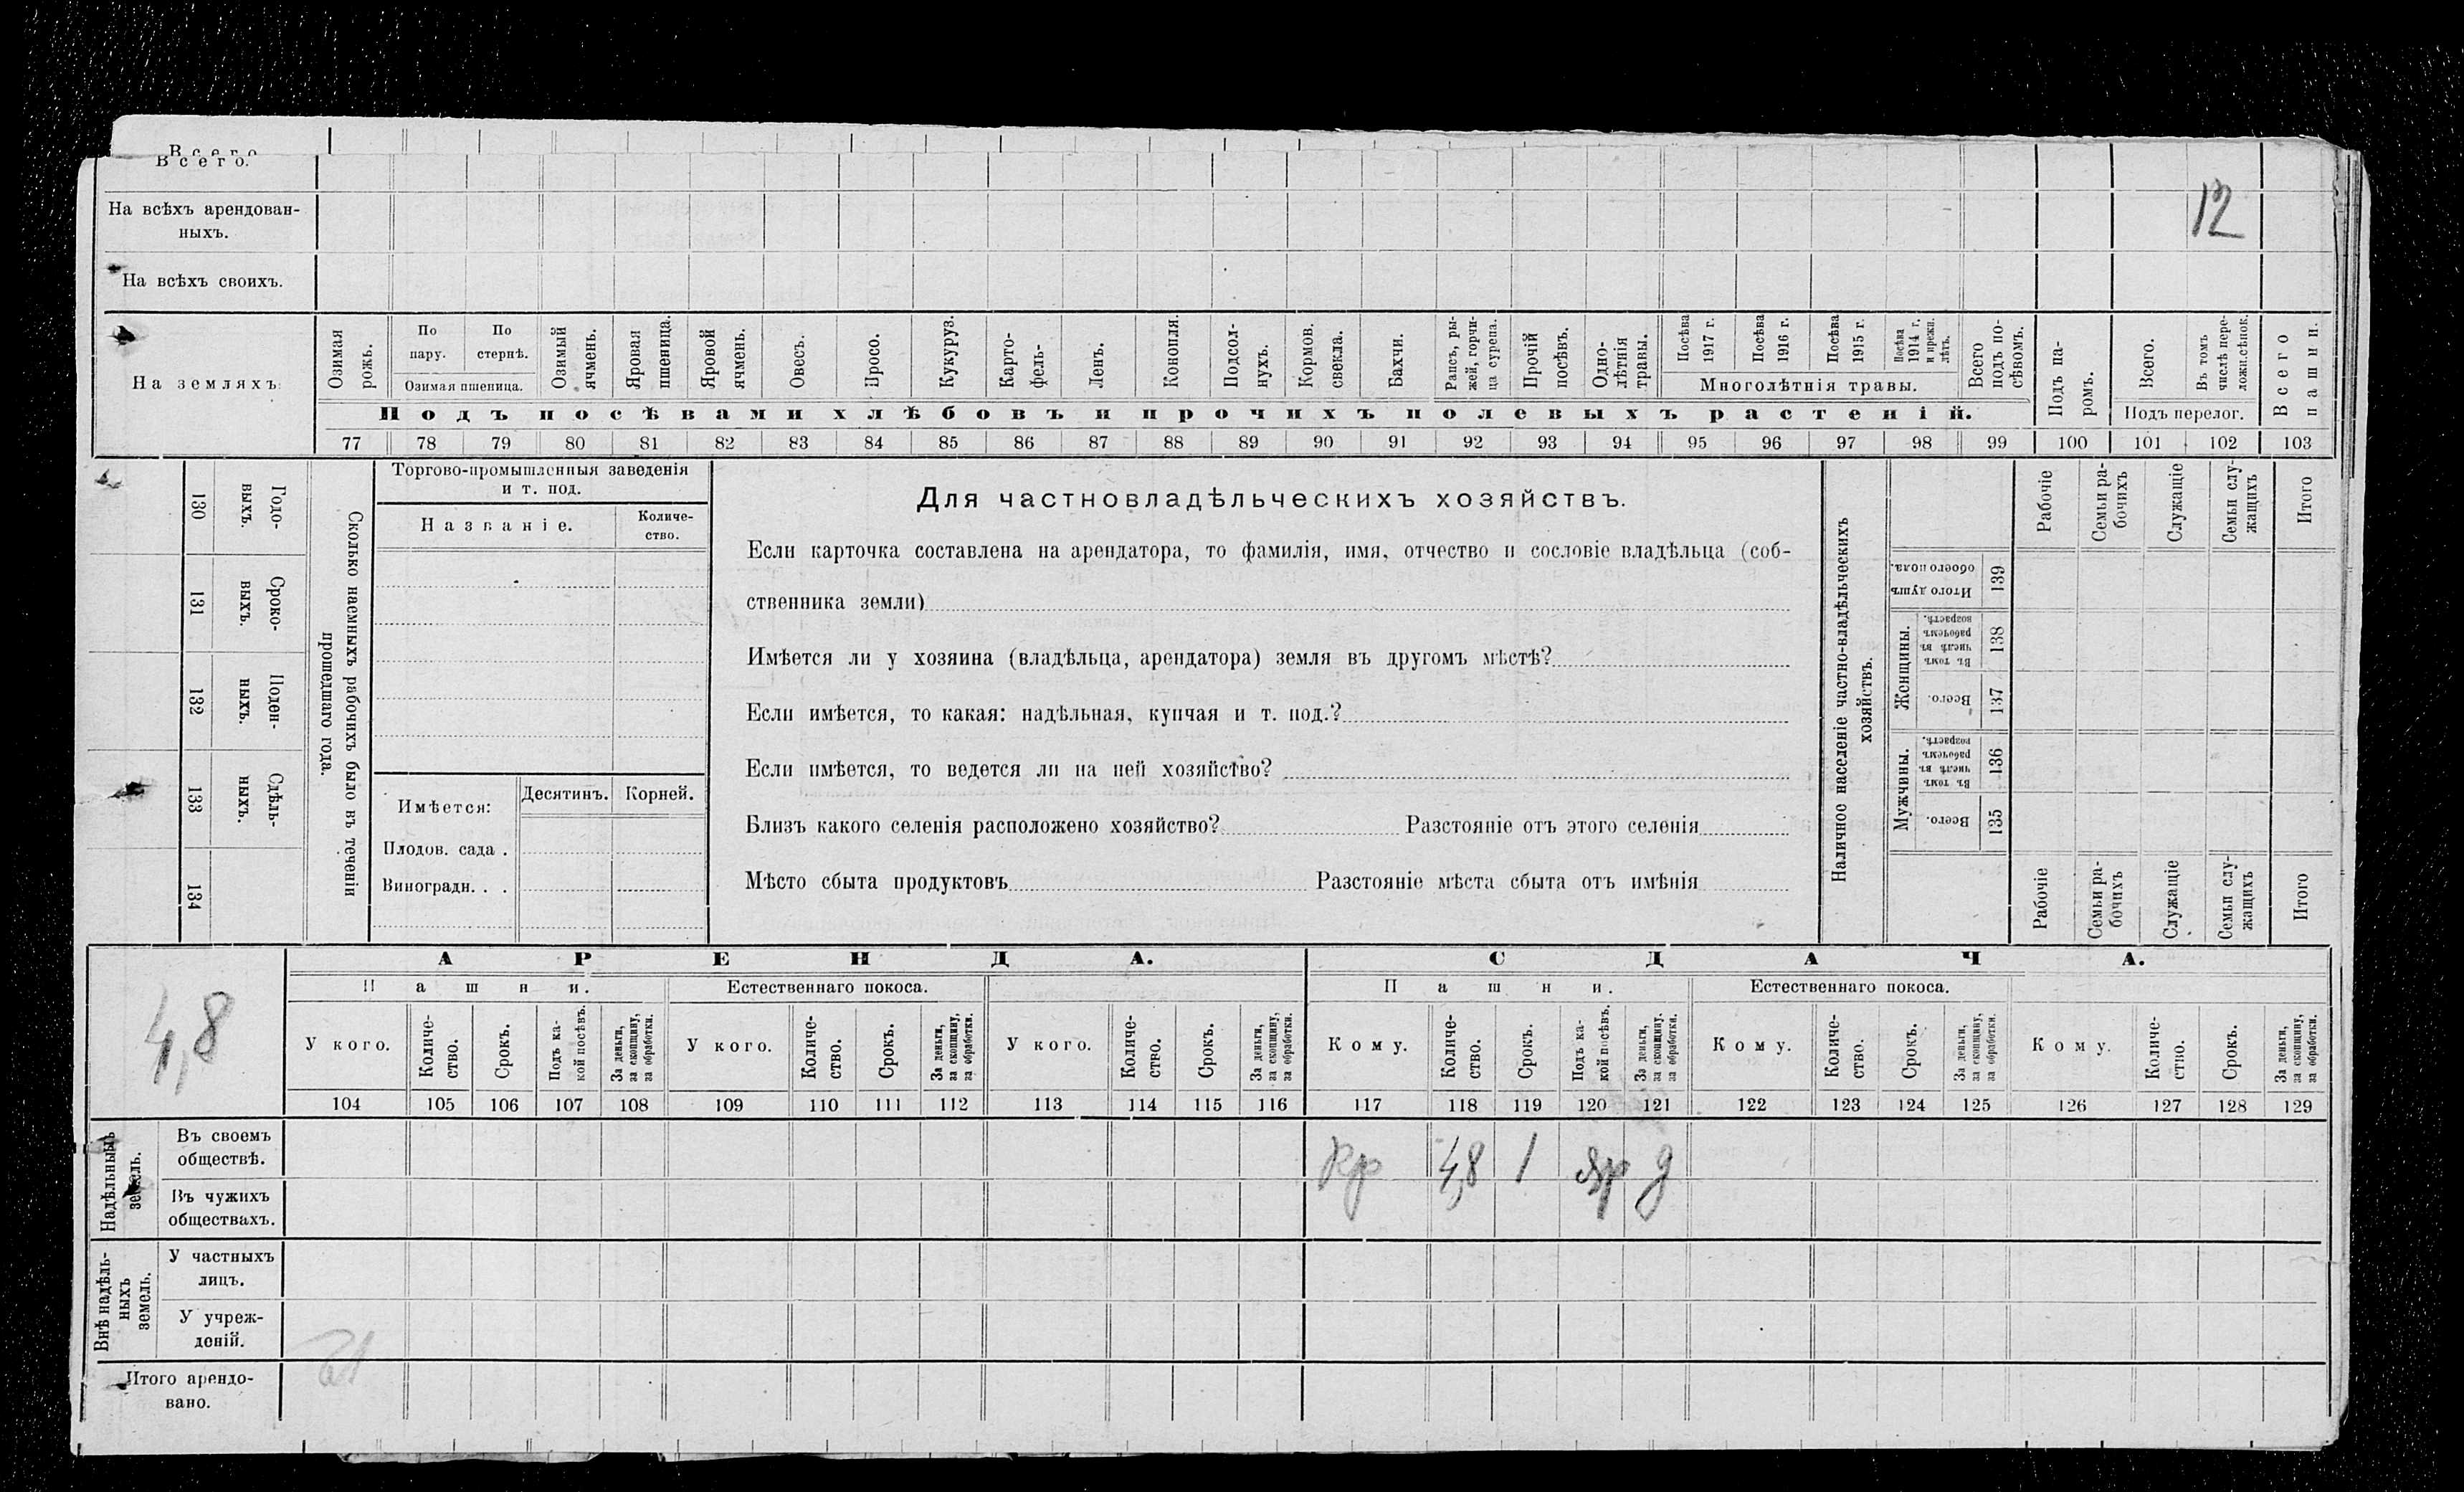 Всего
Всего.
На всѣхъ арендован-
ныхъ.
12
На всѣхъ своихъ.
На земляхъ:
Озимая рожь.
По пару.
По стернѣ.
Озимая пшеница.
Озимый ячмень.
Яровая пшеница.
Яровой ячмень.
Овесъ.
Просо.
Кукуруз.
Карто-
фель-
Ленъ.
Конопля.
Подсол-
нухъ.
Кормов.
свекла.
Бахчи.
Рапсъ, ры-
жей, горчи-
ца сурепа.
Прочій
посѣвъ.
Одно-
лѣтнія
травы.
Посѣва
1917 г.
Посѣва
1916 г.
Посѣва
1915 г.
Посѣва
1914 г.
и прежн.
лѣтъ.
Многолѣтнія травы.
Всего
подъ по-
сѣвомъ.
Подъ посѣвами хлѣбовъ и прочихъ полевыхъ растеній.
Подъ па-
ромъ.
Всего.
Въ томъ
числѣ пере-
ложн.сѣнок.
Подъ перелог.
Всего
пашни.
77 78 79 80 81 82 83 84 85 86 87 88 89 90 91 92 93 94 95 96 97 98 99 100 101 102 103
130
Годо-
выхъ.
131
Сроко-
выхъ.
132
Поден-
ныхъ.
133
Сдѣль-
ныхъ.
134
Сколько наемныхъ рабочихъ было въ теченіи
прошедшаго года.
Торгово-промышленныя заведенія
и т. под.
Названіе.
Количе-
ство.
Имѣется:
Десятинъ.
Корней.
Плодов. сада .
Виноградн. . .
Для частновладѣльческихъ хозяйствъ.
Если карточка составлена на арендатора, то фамилія, имя, отчество и сословіе владѣльца (соб-
ственника земли)
Имѣется ли у хозяина (владѣльца, арендатора) земля въ другомъ мѣстѣ?
Если имѣется, то какая: надѣльная, купчая и т. под.?
Если имѣется, то ведется ли на ней хозяйство?
Близъ какого селенія расположено хозяйство? Разстояніе отъ этого селенія
Мѣсто сбыта продуктовъ Разстояніе мѣста сбыта отъ имѣнія
Наличное населеніе частно-владѣльческихъ
хозяйствъ.
Рабочіе
Семьи ра-
бочихъ
Служащіе
Семьи слу-
жащихъ
Итого
Итого душъ
обоего пола.
139
Женщины.
Въ томъ
числѣ въ
рабочемъ
возрастѣ.
138
Всего.
137
Мужчины.
Въ томъ
числѣ въ
рабочемъ
возрастѣ.
136
Всего.
135
Рабочіе
Семьи ра-
бочихъ
Служащіе
Семьи слу-
жащихъ
Итого
4,8
АРЕНДА.
СДАЧА.
Пашни.
Естественнаго покоса.
Пашни.
Естественнаго покоса.
У кого.
Количе-
ство.
Срокъ.
Подъ ка-
кой посѣвъ.
За деньги,
за скопщину,
за обработки.
У кого.
Количе-
ство.
Срокъ.
За деньги,
за скопщину,
за обработки.
У кого.
Количе-
ство.
Срокъ.
За деньги,
за скопщину,
за обработки.
Кому.
Количе-
ство.
Срокъ.
Подъ ка-
кой посѣвъ.
За деньги,
за скопщину.
за обработки.
Кому.
Количе-
ство.
Срокъ.
За деньги,
за скопщину,
за обработки.
Кому.
Количе-
ство.
Срокъ.
За деньги,
за скопщину,
за обработки.
104 105 106 107 108 109 110 111 112 113 114 115 116 117 118 119 120 121 122 123 124 125 126 127 128 129
Надѣльныхъ
земель.
Въ своемъ
обществѣ.
Кр 4,8 1 Яр д
Въ чужихъ
обществахъ.
Внѣ надѣль-
ныхъ
земель.
У частныхъ
лицъ.
У учреж-
деній.
21
Итого арендо-
вано.